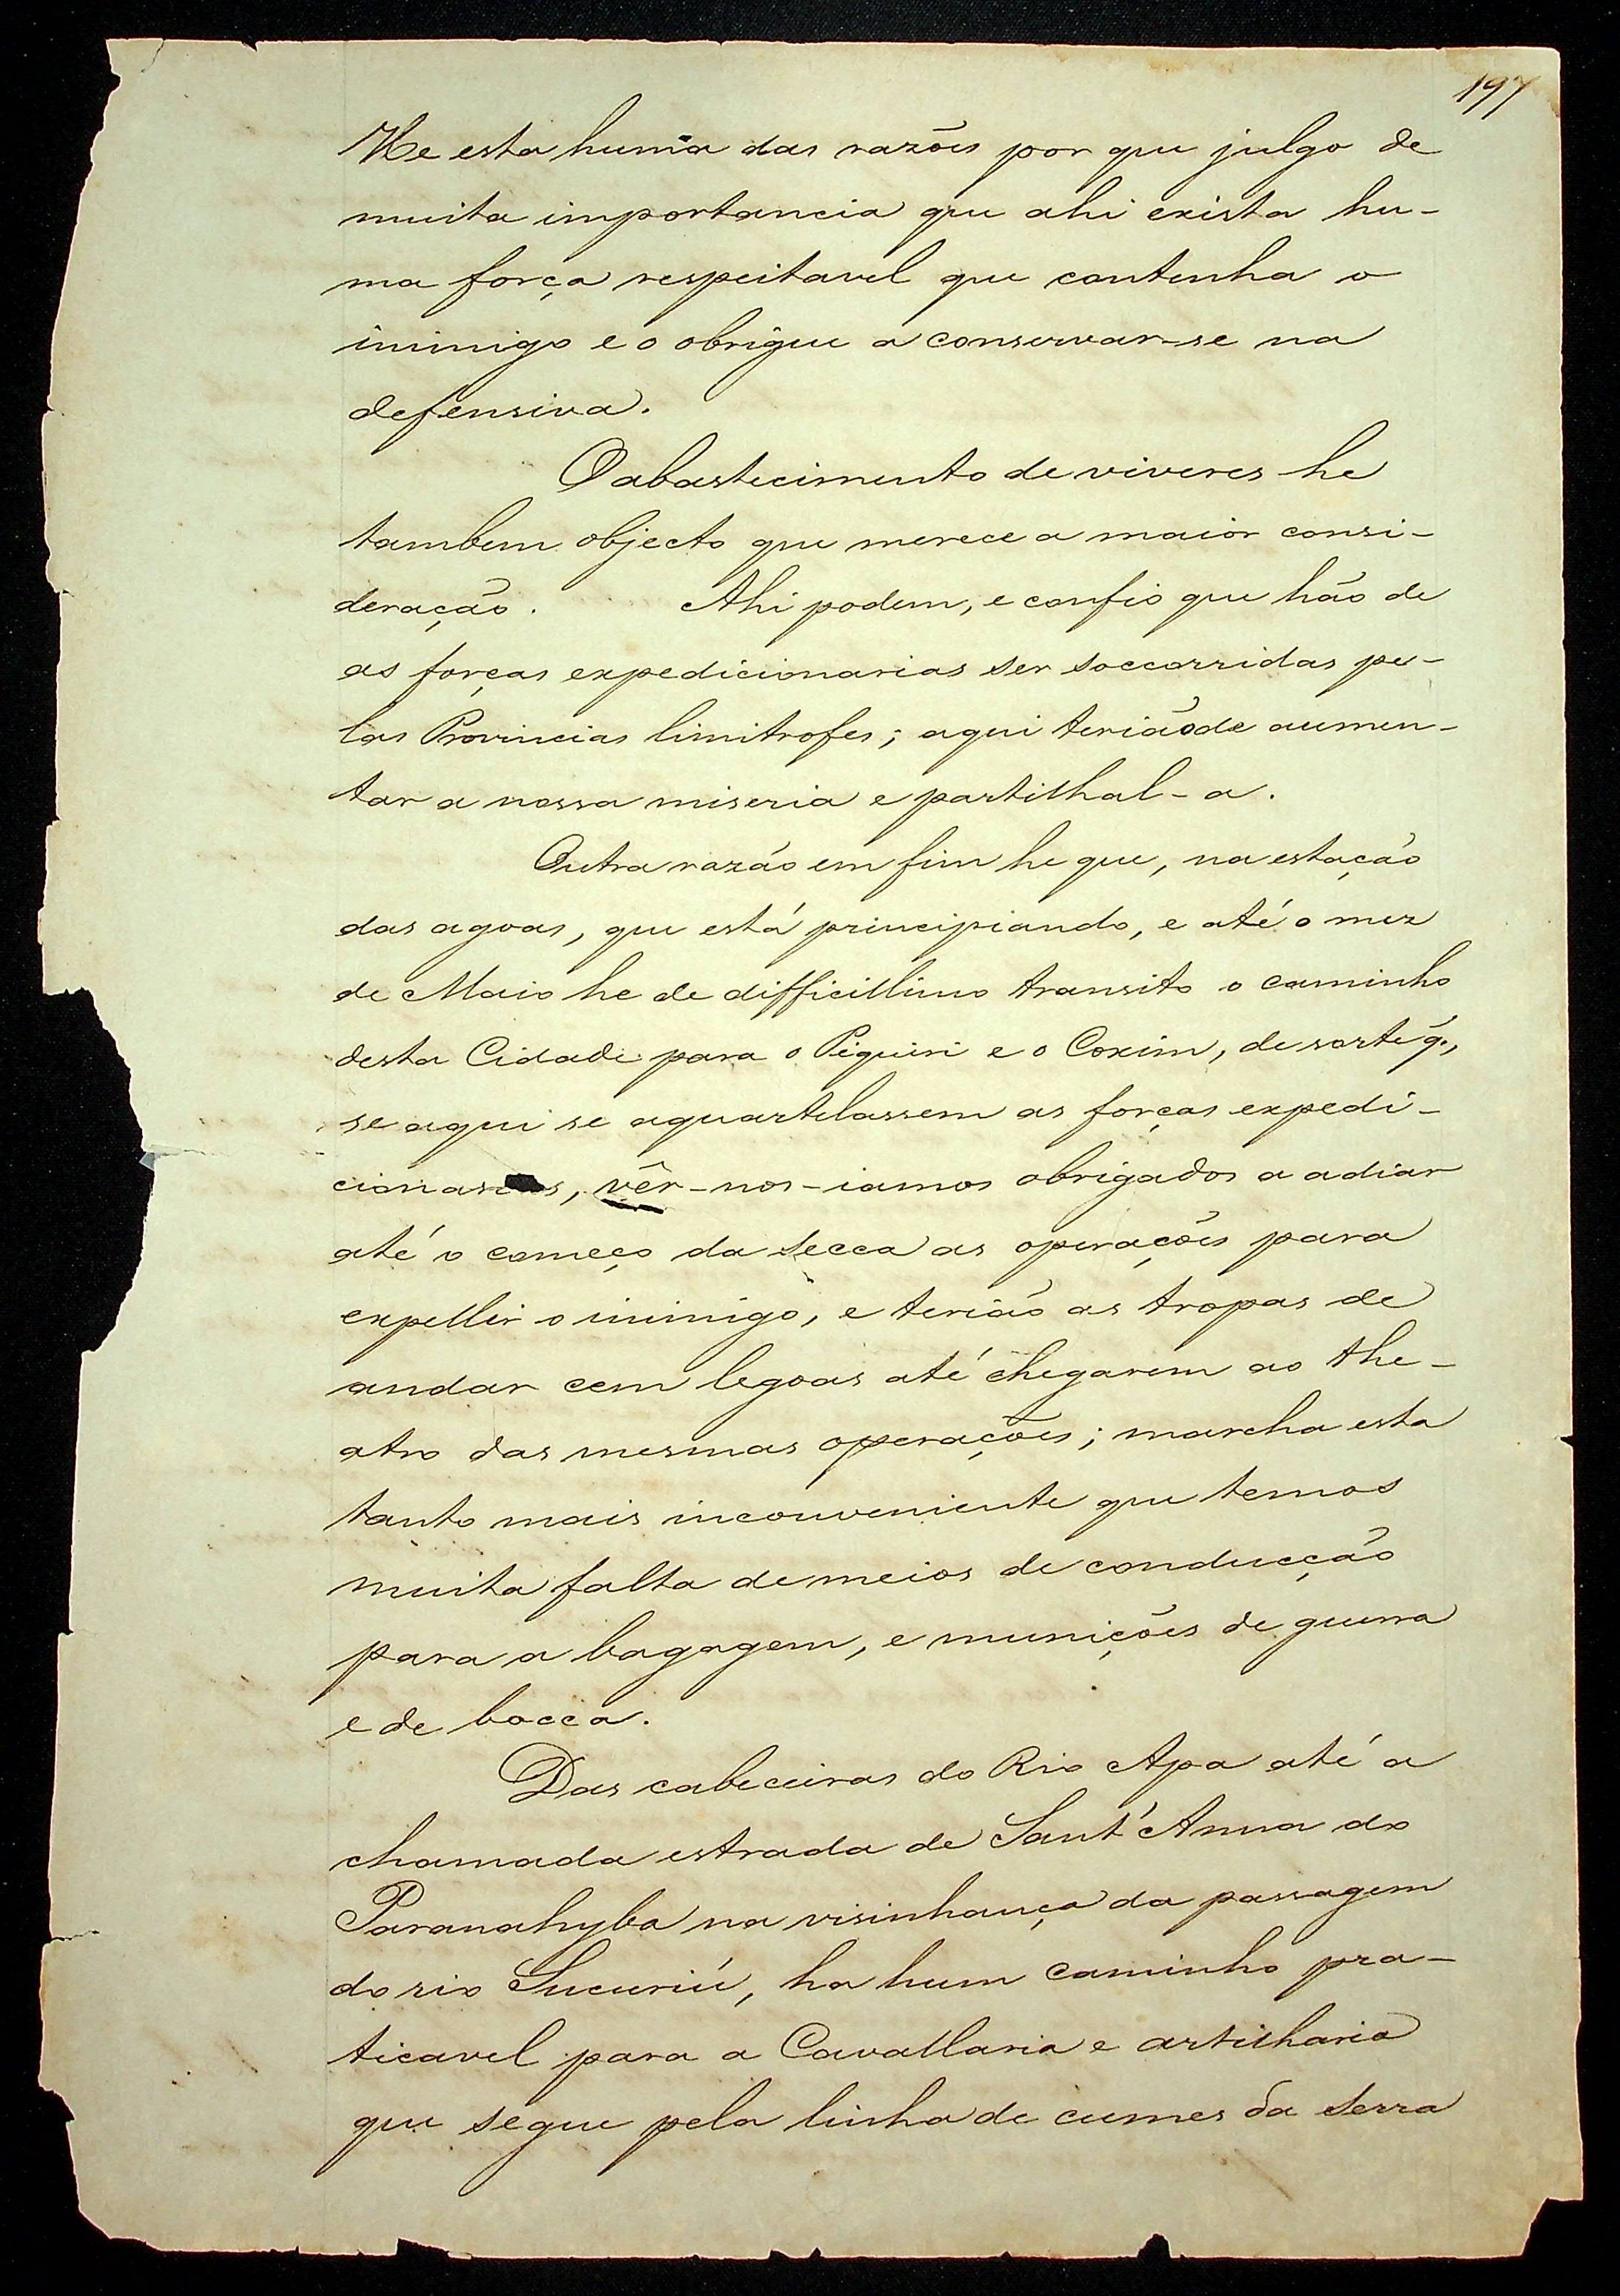 197
He esta huma das razões por que julgo de
muita importancia que ahi exista hu-
ma força respeitavel que contenha o
inimigo e o obrigue a conservar-se na
defensiva.
O abastecimento de viveres he
tambem objecto que merece a maior consi-
deração. Ahi podem, e confio que hão de
as forças expedicionarias ser soccorridas pe-
las Provincias limitrofes; aqui terião de aumen-
tar a nossa miseria e partilhal-a.
Outra razão em fim he que, na estação
das agoas, que está principiando, e até o mez
de Maio he de difficillimo transito o caminho
desta Cidade para o Piquiri e o Coxim, de sorte q.,
se aqui se aquartelassem as forças expedi-
cionarias, vêr-nos-iamos obrigados a adiar
até o começo da secca as operações para
expellir o inimigo, e terião as tropas de
andar cem legoas até chegarem ao the-
atro das mesmas operações; marcha esta
tanto mais inconveniente que temos
muita falta de meios de conducção
para a bagagem, e munições de guerra
e de bocca.
Das cabeceiras do Rio Apa até a
chamada estrada de Sant'Anna do
Paranahyba na visinhança da passagem
do rio Sucuriú, ha hum caminho pra-
ticavel para a Cavallaria e artilharia
que segue pela linha de cumes da Serra